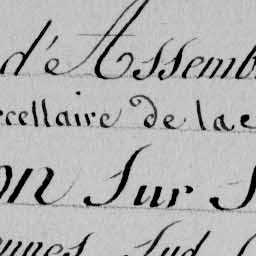 d'Assemb
rcellaire de la c
on Sur S
ennes Sud